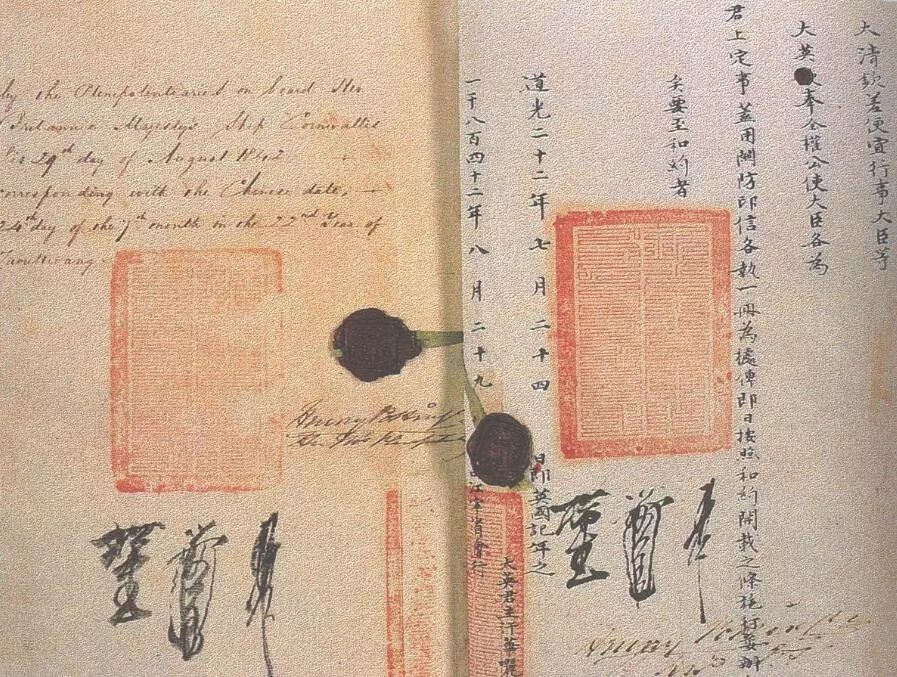 by the Plenipotentiaries on board Her
Britannic Majesty's Ship Cornwallis
29th day of August 1842
corresponding with the Chinese date,
24th day of the 7th month in the 22nd Year of
Taoukwang
Henry Pottinger
大清欽差便宜行事大臣等
大英奉全權公使大臣各為
君上定事蓋用關防印信各執一冊為據俾即日按照和約開載之條施行妥辦
矣要至和約者
道光二十二年七月二十四日即英國記年之
一千八百四十二年八月二十九 江寧省會行
大英君主汗華囇
Henry Pottinger